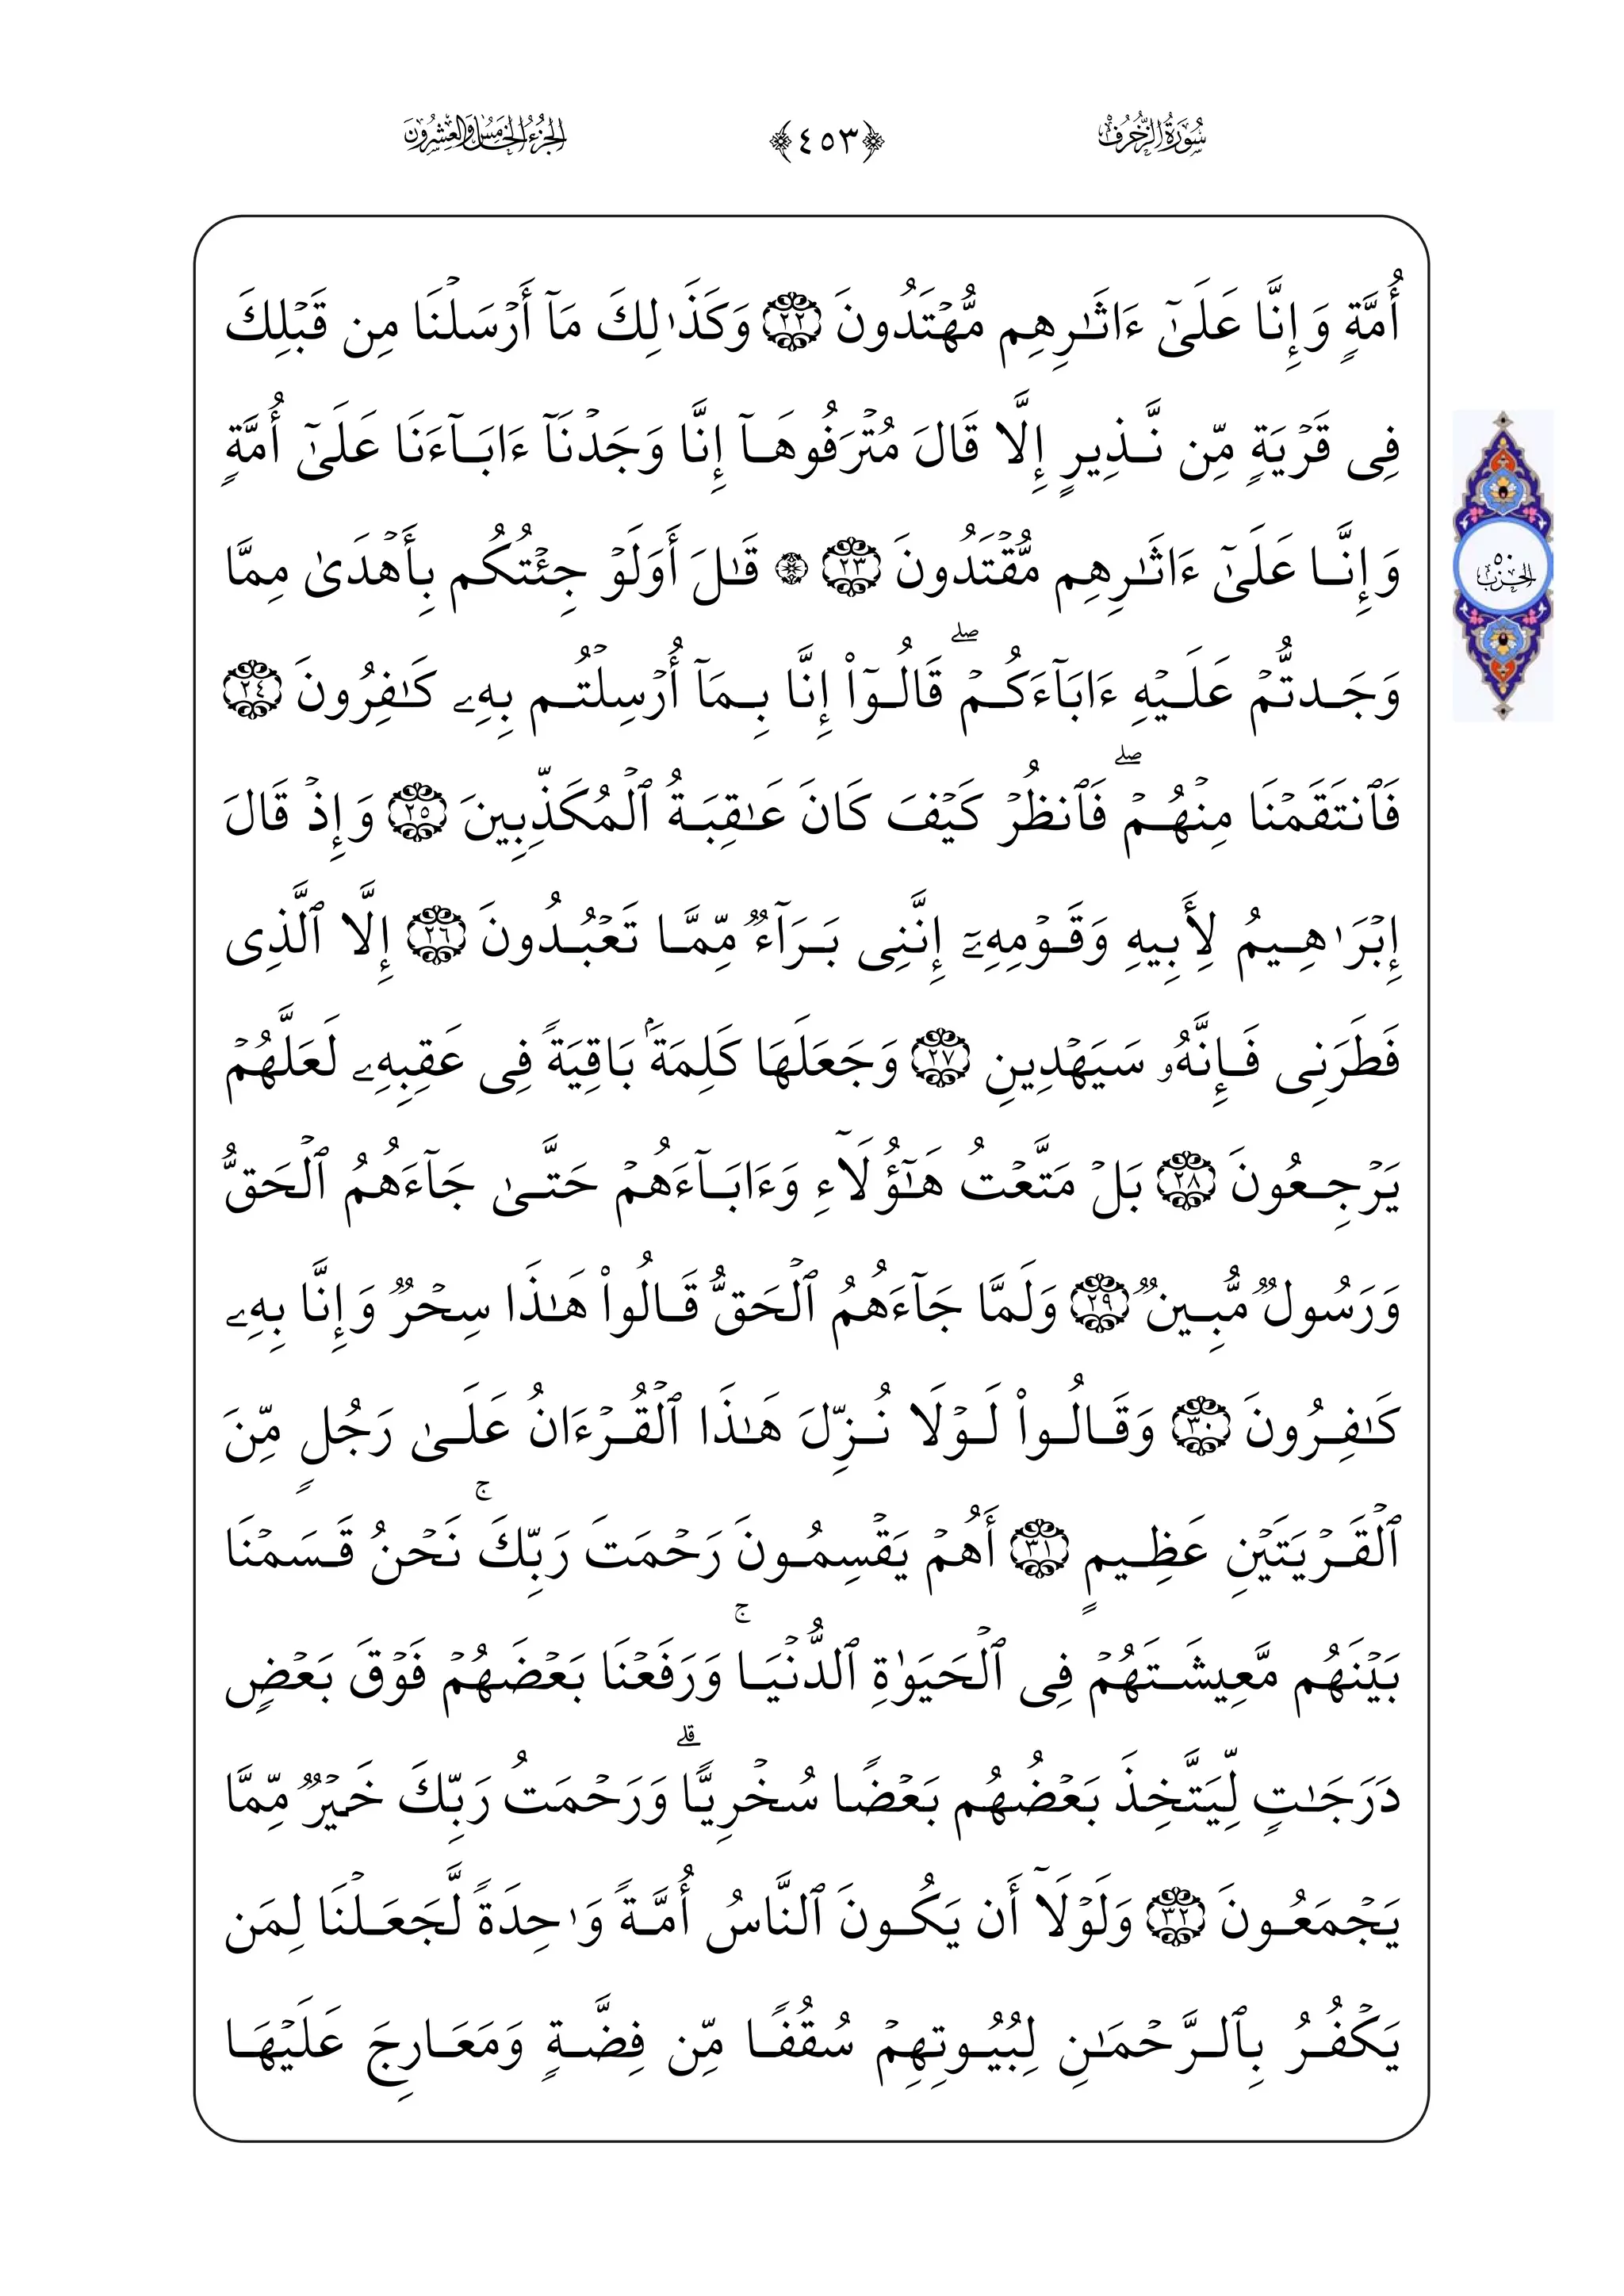 سُورَةُ الزُّخْرُفِ ﴿٤٥٣﴾ الجُزْءُ الخَامِسُ وَالعِشْرُونَ
أُمَّةٍ وَإِنَّا عَلَىٰٓ ءَاثَـٰرِهِم مُّهۡتَدُونَ ٢٢ وَكَذَٰلِكَ مَآ أَرۡسَلۡنَا مِن قَبۡلِكَ
فِى قَرۡيَةٍ مِّن نَّذِيرٍ إِلَّا قَالَ مُتۡرَفُوهَآ إِنَّا وَجَدۡنَآ ءَابَآءَنَا عَلَىٰٓ أُمَّةٍ
وَإِنَّا عَلَىٰٓ ءَاثَـٰرِهِم مُّقۡتَدُونَ ٢٣ ۞ قَـٰلَ أَوَلَوۡ جِئۡتُكُم بِأَهۡدَىٰ مِمَّا
وَجَدتُّمۡ عَلَيۡهِ ءَابَآءَكُمۡۖ قَالُوٓا۟ إِنَّا بِمَآ أُرۡسِلۡتُم بِهِۦ كَـٰفِرُونَ ٢٤
فَٱنتَقَمۡنَا مِنۡهُمۡۖ فَٱنظُرۡ كَيۡفَ كَانَ عَـٰقِبَةُ ٱلۡمُكَذِّبِينَ ٢٥ وَإِذۡ قَالَ
إِبۡرَٰهِيمُ لِأَبِيهِ وَقَوۡمِهِۦٓ إِنَّنِى بَرَآءٌ مِّمَّا تَعۡبُدُونَ ٢٦ إِلَّا ٱلَّذِى
فَطَرَنِى فَإِنَّهُۥ سَيَهۡدِينِ ٢٧ وَجَعَلَهَا كَلِمَةَۢ بَاقِيَةً فِى عَقِبِهِۦ لَعَلَّهُمۡ
يَرۡجِعُونَ ٢٨ بَلۡ مَتَّعۡتُ هَـٰٓؤُلَآءِ وَءَابَآءَهُمۡ حَتَّىٰ جَآءَهُمُ ٱلۡحَقُّ
وَرَسُولٌ مُّبِينٌ ٢٩ وَلَمَّا جَآءَهُمُ ٱلۡحَقُّ قَالُوا۟ هَـٰذَا سِحۡرٌ وَإِنَّا بِهِۦ
كَـٰفِرُونَ ٣٠ وَقَالُوا۟ لَوۡلَا نُزِّلَ هَـٰذَا ٱلۡقُرۡءَانُ عَلَىٰ رَجُلٍ مِّنَ
ٱلۡقَرۡيَتَيۡنِ عَظِيمٍ ٣١ أَهُمۡ يَقۡسِمُونَ رَحۡمَتَ رَبِّكَۚ نَحۡنُ قَسَمۡنَا
بَيۡنَهُم مَّعِيشَتَهُمۡ فِى ٱلۡحَيَوٰةِ ٱلدُّنۡيَاۚ وَرَفَعۡنَا بَعۡضَهُمۡ فَوۡقَ بَعۡضٍ
دَرَجَـٰتٍ لِّيَتَّخِذَ بَعۡضُهُم بَعۡضًا سُخۡرِيًّاۗ وَرَحۡمَتُ رَبِّكَ خَيۡرٌ مِّمَّا
يَجۡمَعُونَ ٣٢ وَلَوۡلَآ أَن يَكُونَ ٱلنَّاسُ أُمَّةً وَٰحِدَةً لَّجَعَلۡنَا لِمَن
يَكۡفُرُ بِٱلرَّحۡمَـٰنِ لِبُيُوتِهِمۡ سُقُفًا مِّن فِضَّةٍ وَمَعَارِجَ عَلَيۡهَا
الحزب ٥٠